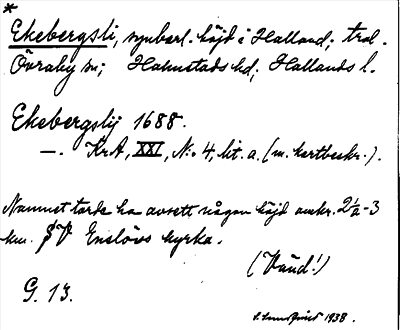 *
Ekebergsli, synbarl. höjd i Halland; trol.
Övraby sn; Halmstads hd; Hallands l.
Ekebergslij 1688.
—. KrA, XXI, No 4, lit. a. (m. kartbeskr.).
Namnet torde ha avsett någon höjd omkr. 2½-3
km. SV Enslövs kyrka.
(Vänd!)
G. 13.
1938.